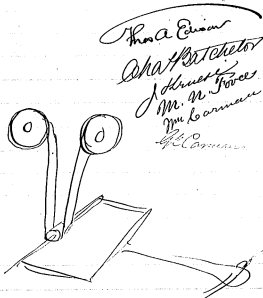 Thos A Edison
Chas Batchelor
J Kruesi
M. N. Force
Wm Carman
Geo Carman